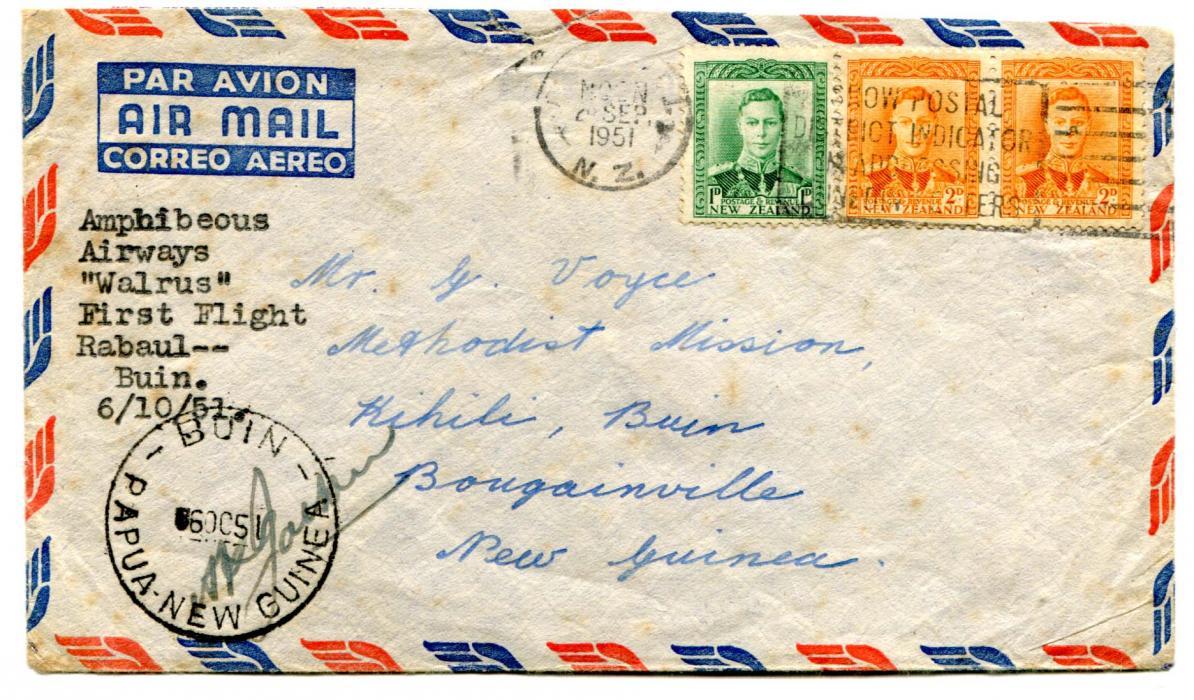 PAR AVION
AIR MAIL
CORREO AEREO
NOON
SEP
1951
N. Z.
POSTAL
DISTRICT INDICATOR
1D 1D
POSTAGE & REVENUE
NEW ZEALAND
POSTAGE & REVENUE 2D
NEW ZEALAND
POSTAGE & REVENUE 2D
NEW ZEALAND
Amphibeous
Airways
"Walrus"
First Flight
Rabaul--
Buin.
6/10/51.
Mr. G. Voyce
Methodist Mission,
Kihili, Buin
Bougainville
New Guinea.
BUIN
6OC51
PAPUA-NEW GUINEA